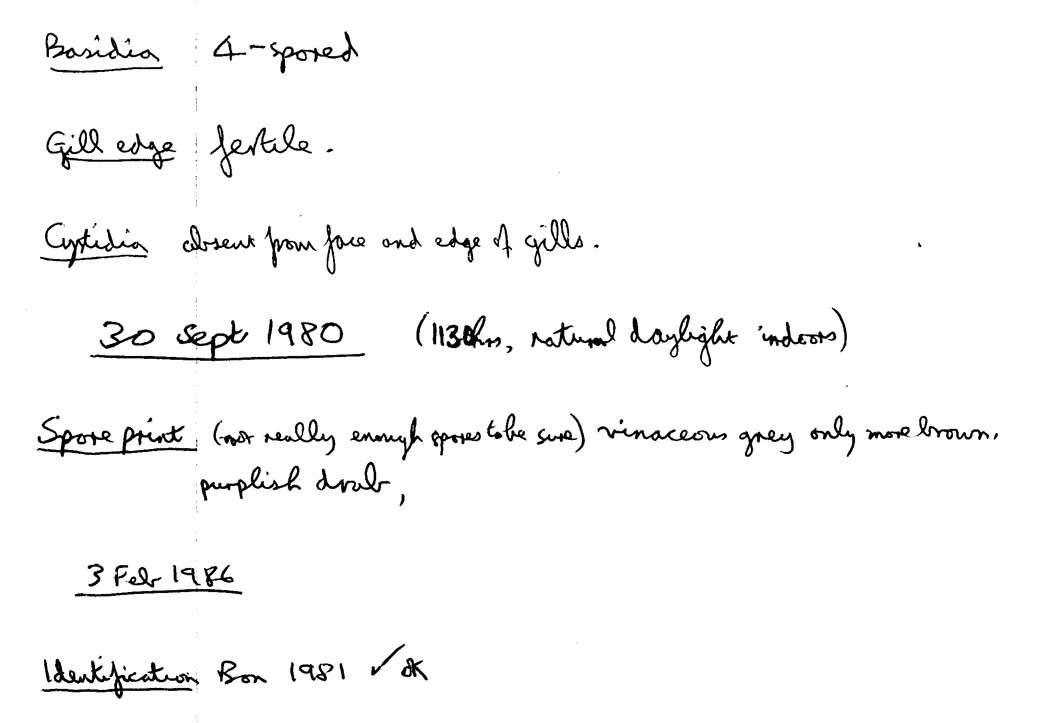 Basidia 4-spored
Gill edge fertile.
Cystidia absent from face and edge of gills.
30 Sept 1980 (1130hrs, natural daylight indoors)
Spore print (not really enough spores to be sure) vinaceous grey only more brown.
purplish drab,
3 Feb 1986
Identification Bon 1981 ✓ OK